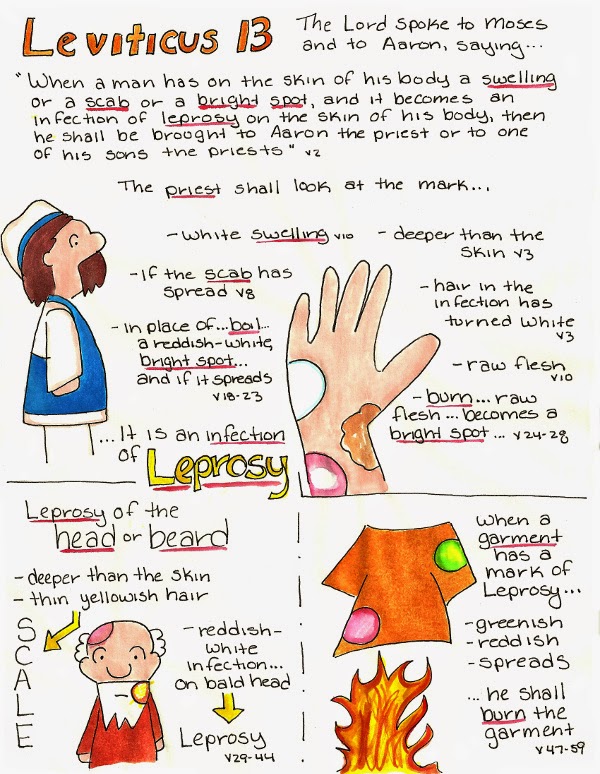 Leviticus 13
The Lord spoke to Moses
and to Aaron, saying...
"When a man has on the skin of his body a swelling
or a scab or a bright spot, and it becomes an
infection of leprosy on the skin of his body, then
he shall be brought to Aaron the priest or to one
of his sons the priests" v2
The priest shall look at the mark...
- white swelling v10
- if the scab has
spread v8
- in place of... boil...
a reddish-white,
bright spot...
and if it spreads
v18-23
- deeper than the
skin v3
- hair in the
infection has
turned white
v3
- raw flesh
v10
- burn... raw
flesh... becomes a
bright spot... v24-28
...It is an infection
of Leprosy
Leprosy of the
head or beard
- deeper than the skin
- thin yellowish hair
S
C
A
L
E
- reddish-
white
infection...
on bald head
Leprosy
v29-44
When a
garment
has a
mark of
Leprosy...
- greenish
- reddish
- spreads
... he shall
burn the
garment
v47-59